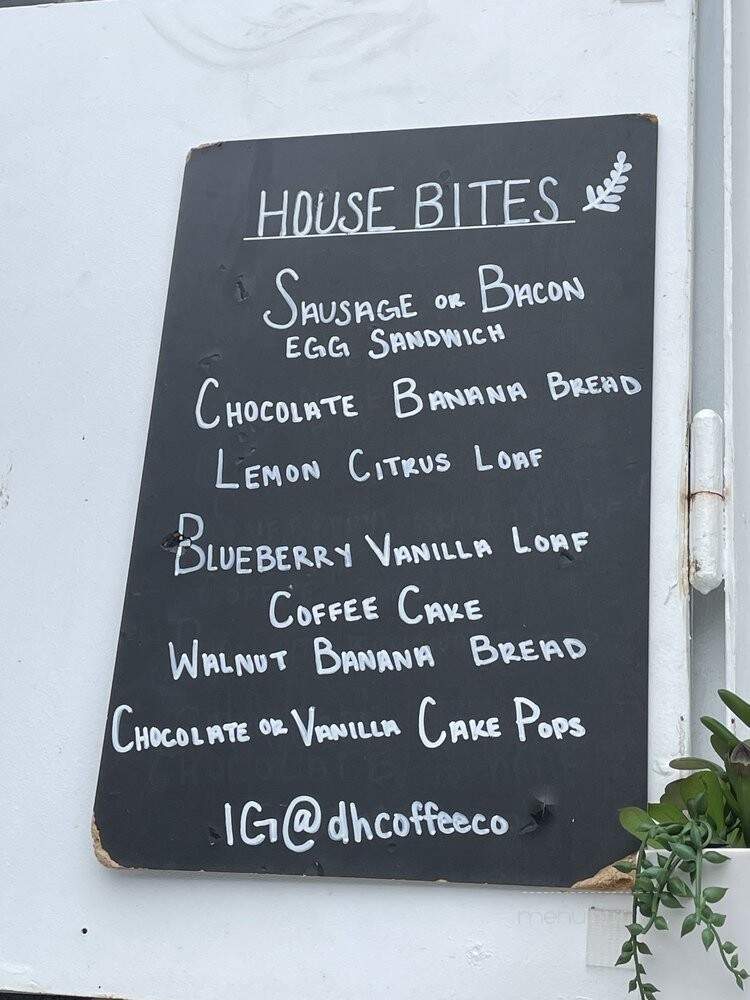 HOUSE BITES
SAUSAGE OR BACON
EGG SANDWICH
CHOCOLATE BANANA BREAD
LEMON CITRUS LOAF
BLUEBERRY VANILLA LOAF
COFFEE CAKE
WALNUT BANANA BREAD
CHOCOLATE OR VANILLA CAKE POPS
IG@dhcoffeeco